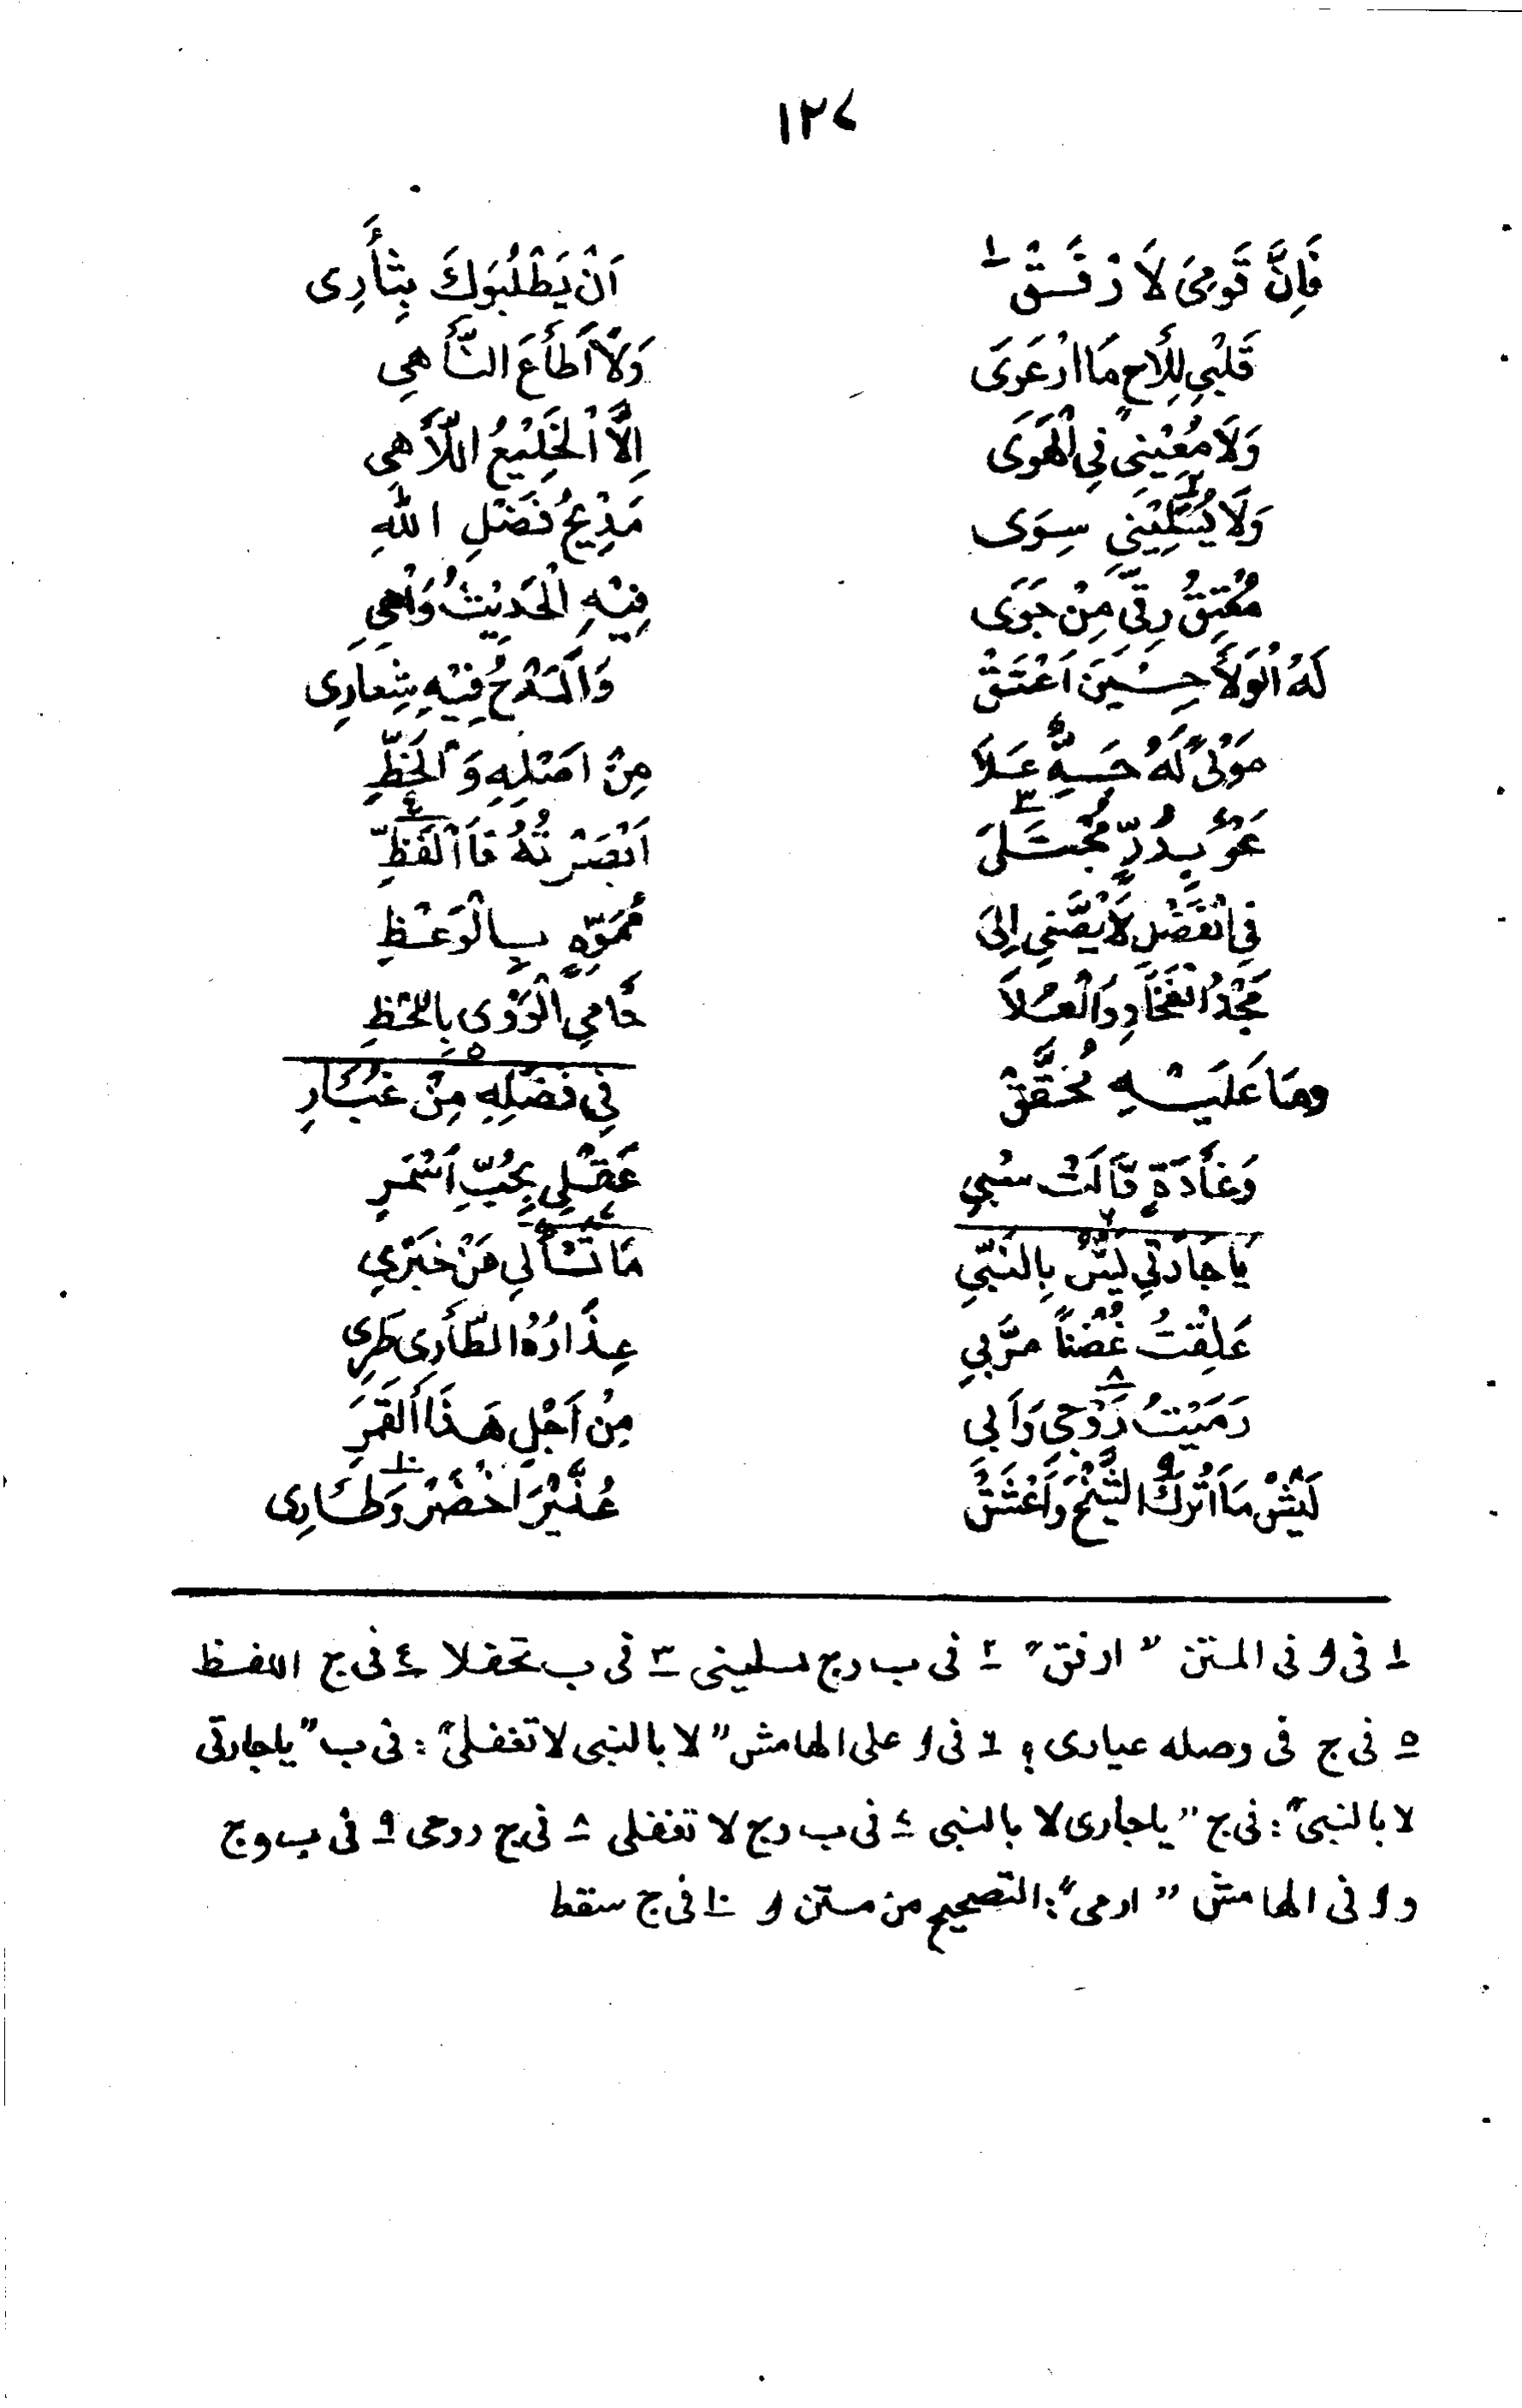 ١٢٧
فَإِنَّ قَومِىَ لاَزْرَقْ ١ اَنْ يَطْلُبُوكَ بِثأَرِى
قَلْبِي لِلأَحٍ مَا ارْعَوَى وَلاَ أَطأَعَ النَّأهِي
وَلاَ مُعِيْنِي فِي الْهَوَى اِلَّا الْخَلِيْعُ اللَّأهِي
وَلَا يُسَلِّيْنِي ٢ سِوَى مَدِيْحُ فَضْلِ اللهِ
مُعْتِقُ رِقِّي مِنْ جَوَى فِيْهِ الْحَدِيْثُ وَاهِي
لَهُ الْوَلأَ حِيْنَ اَعْتَقْ وَالْمَدْحُ فِيْهِ شِعَارِى
مَوْلىً لَهُ حَظٌّ عَلاَ مِنْ اَصْلِهِ وَالْحَظِّ
بِدُرٍّ مُجْتَلَى ٣ اَبْصَرْتُهُ فَاَلْفَظِّ ٤
فِي الْفَضْلِ لاَ يُصْغِي اِلىَ مُمَوِّهٍ بِالْوَعْظِ
مَجْدُ الْفَخَارِ وَالْعُلاَ حَامِي الْوَرَى بِاللَّحْظِ
وَمَا عَلَيْهِ مُحَقَّقْ فِي فَضْلِهِ مِنْ غُبَارِ ٥
وَغَأدَةٍ قَالَتْ سُبِي عَقْلِي بِحُبِّ اَسْمَرِ
يَا جَارَتِي لَيْسَ بِالنَّبِي ٦ مَا تَسْأَلِي عَنْ خَبَرِي ٧
عَلِقْتُ غُصْناً مَرَّبِي عِذَارُهُ الطَّأرِى طَرِى
رَمَيْتُ زَوْجِي ٨ وَاَبِي مِنْ اَجْلِ هَذَا الْقَمَرِ
لَيْشْ مَا اَتْرُكْ ٩ الشَّيْخْ وَاَعْشَقْ عُذَيِّرَ اخْضَرْ ١٠ وَطَارِى
١ فى و فى المتن " ارفق" ٢ فى ب وج تسلينى ٣ فى ب تحفلا ٤ فى ج اللفظ
٥ فى ج فى وصله عيارى ؛ ٦ فى و على الهامش " لا بالنبى لا تغفلى" : فى ب " ياجارتى
لا بالنبى" : فى ج " ياجارى لا بالنبى ٧ فى ب وج لا تغفلى ٨ فى ج روحى ٩ فى ب وج
و و فى الهامش " ارمى" : التصحيح من متن و ١٠ فى ج سقط